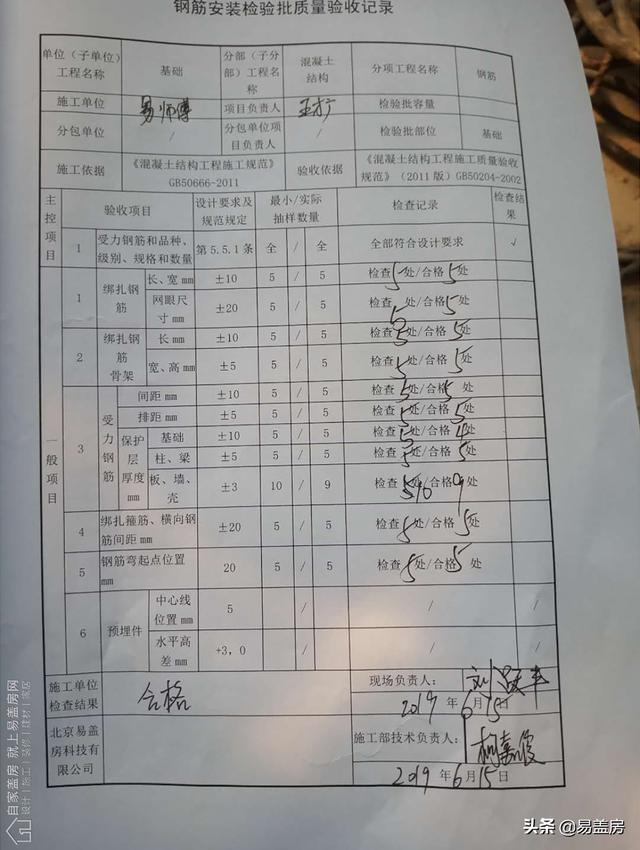 钢筋安装检验批质量验收记录
单位(子单位)工程名称 基础 分部(子分部)工程名称 混凝土结构 分项工程名称 钢筋
施工单位 易师傅 项目负责人 检验批容量
分包单位 / 分包单位项目负责人 / 检验批部位 基础
施工依据 《混凝土结构工程施工规范》GB50666-2011 验收依据 《混凝土结构工程施工质量验收规范》(2011版)GB50204-2002
主控项目 验收项目 设计要求及规范规定 最小/实际抽样数量 检查记录 检查结果
1 受力钢筋和品种、级别、规格和数量 第5.5.1条 全 / 全 全部符合设计要求 √
一般项目
1 绑扎钢筋 长、宽mm ±10 5 / 5 检查5处/合格5处
网眼尺寸mm ±20 5 / 5 检查5处/合格5处
2 绑扎钢筋骨架 长mm ±10 5 / 5 检查5处/合格5处
宽、高mm ±5 5 / 5 检查5处/合格5处
3 受力钢筋 间距mm ±10 5 / 5 检查5处/合格5处
排距mm ±5 5 / 5 检查5处/合格5处
保护层厚度mm 基础 ±10 5 / 5 检查5处/合格处
柱、梁 ±5 5 / 5 检查5处/合格5处
板、墙、壳 ±3 10 / 9 检查10处/合格9处
4 绑扎箍筋、横向钢筋间距mm ±20 5 / 5 检查5处/合格5处
5 钢筋弯起点位置mm 20 5 / 5 检查5处/合格5处
6 预埋件 中心线位置mm 5 / / /
水平高差mm +3,0 / / /
施工单位检查结果 合格 现场负责人:
2019年6月15日
北京易盖房科技有限公司 施工部技术负责人:
2019年6月15日
自家盖房 就上易盖房网
设计|施工|装修|建材|家居
头条 @易盖房